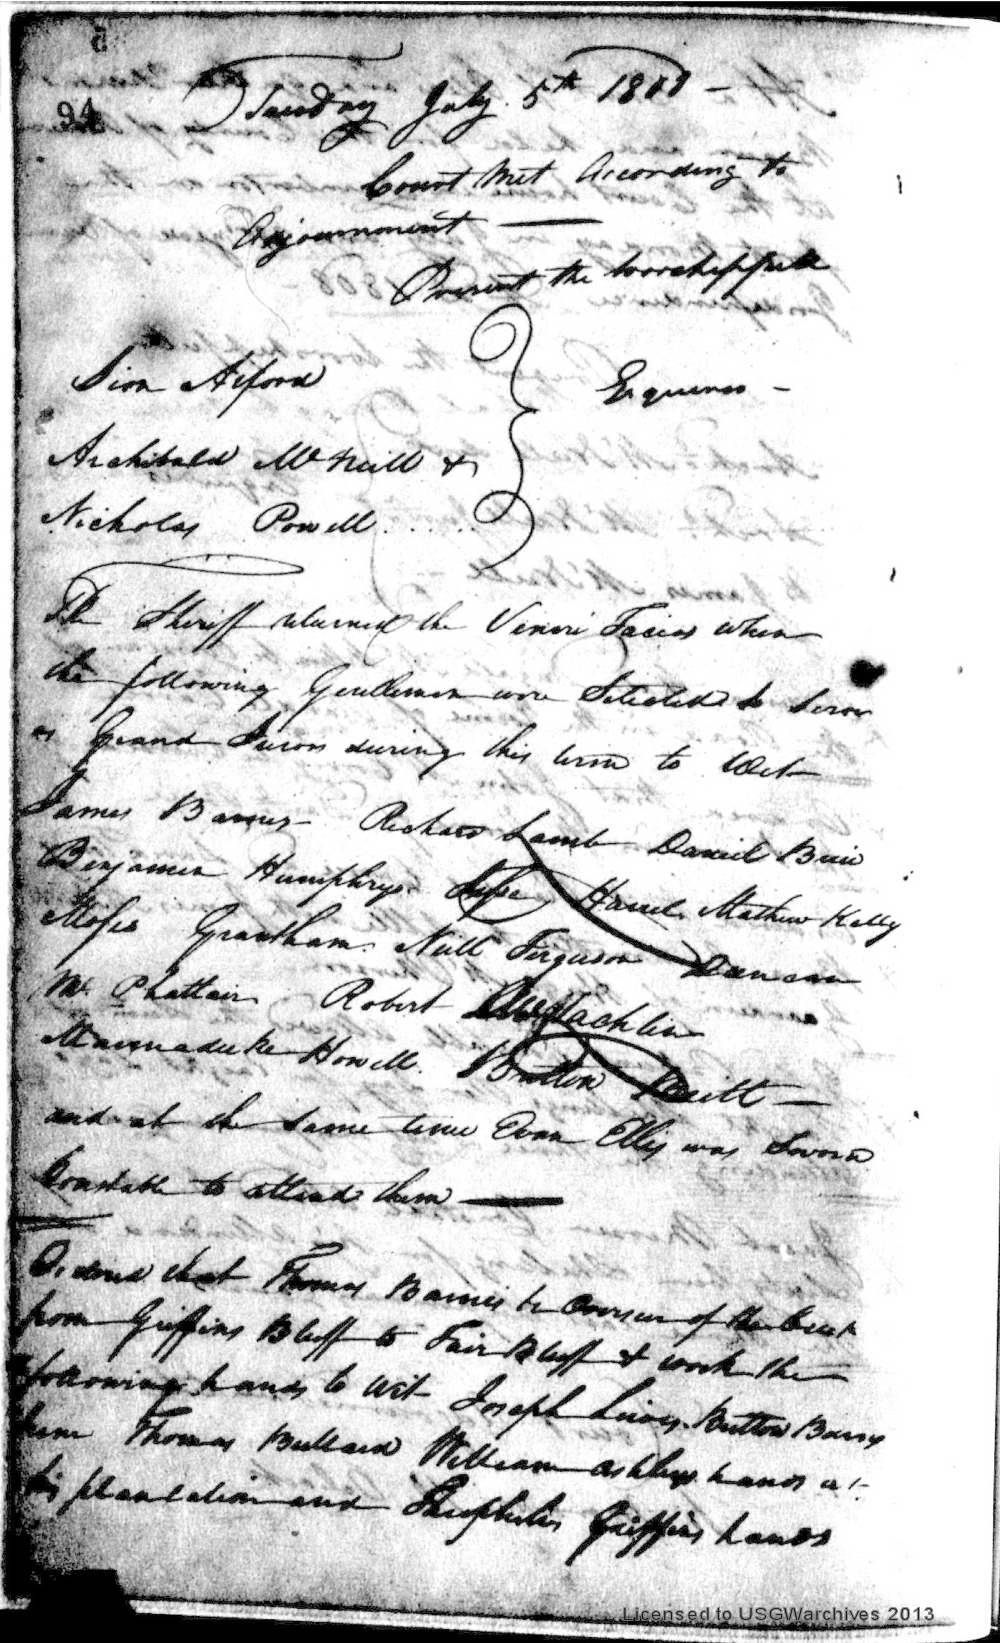 94
Tuesday July 5th 1808 —
Court Met According to
Adjournment —
Present the worshipfull
Sion Alford
Esquires —
Archibald McNeill &
Nicholas Powell
The Sheriff returned the Veniri Facias when
the following Gentlemen were Selected to Serve
as Grand Jurors during this term to Wit
James Barnes Richard Lamb Daniel Buie
Benjamin Humphrys Jesse Harrel Mathew Kelly
Moses Grantham Neill Ferguson Duncan
McPhattair Robert McLachlin
Marmaduke Howell Britton Britt —
and at the Same time Evan Ellis was Sworn
Constable to attend them —
Ordered that Thomas Barnes be Overseer of the
from Griffins Bluff to Fair Bluff & work the
following hands to Wit Joseph Britton Barnes
Thomas Bullard William Ashleys hands at
his plantation and Theophilus Griffins hands
Licensed to USGWarchives 2013